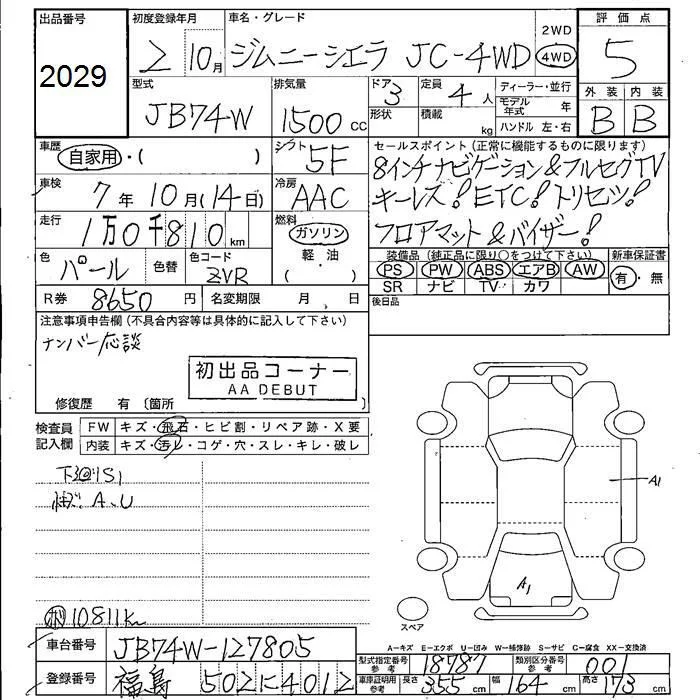 出品番号
2029
初度登録年月
2 10月
車名・グレード
ジムニーシエラ JC-4WD
2WD
4WD
評価点
5
型式
JB74W
排気量
1500cc
ドア
3
形状
定員
4人
積載
kg
ディーラー・並行
モデル年式 年
ハンドル 左・右
外装 内装
B B
車歴
自家用・( )
シフト
5F
セールスポイント(正常に機能するものに限ります)
8インチナビゲーション&フルセグTV
キーレス!ETC!トリセツ!
フロアマット&バイザー!
車検
7年10月(14日)
冷房
AAC
走行
1万0千810km
燃料
ガソリン
軽・油
( )
色
パール
色替
色コード
ZVR
装備品(純正品に限り○をつけて下さい)
PS PW ABS エアB AW
SR ナビ TV カワ
新車保証書
有・無
R券 8650円
名変期限 月 日
後日品
注意事項申告欄(不具合内容等は具体的に記入して下さい)
ナンバー応談
初出品コーナー
AA DEBUT
修復歴 有〔箇所
検査員
記入欄
FW キズ・飛石・ヒビ割・リペア跡・X要
内装 キズ・汚レ・コゲ・穴・スレ・キレ・破レ
S1
A、U
A1
A1
スペア
10811km
A-キズ E-エクボ U-凹み W-補修跡 S-サビ C-腐食 XX-交換済
車台番号 JB74W-127805
登録番号 福島 502 に 4012
型式指定番号 参考 18787
類別区分番号 参考 001
車庫証明用 参考 長さ 355cm 幅 164cm 高さ 173cm